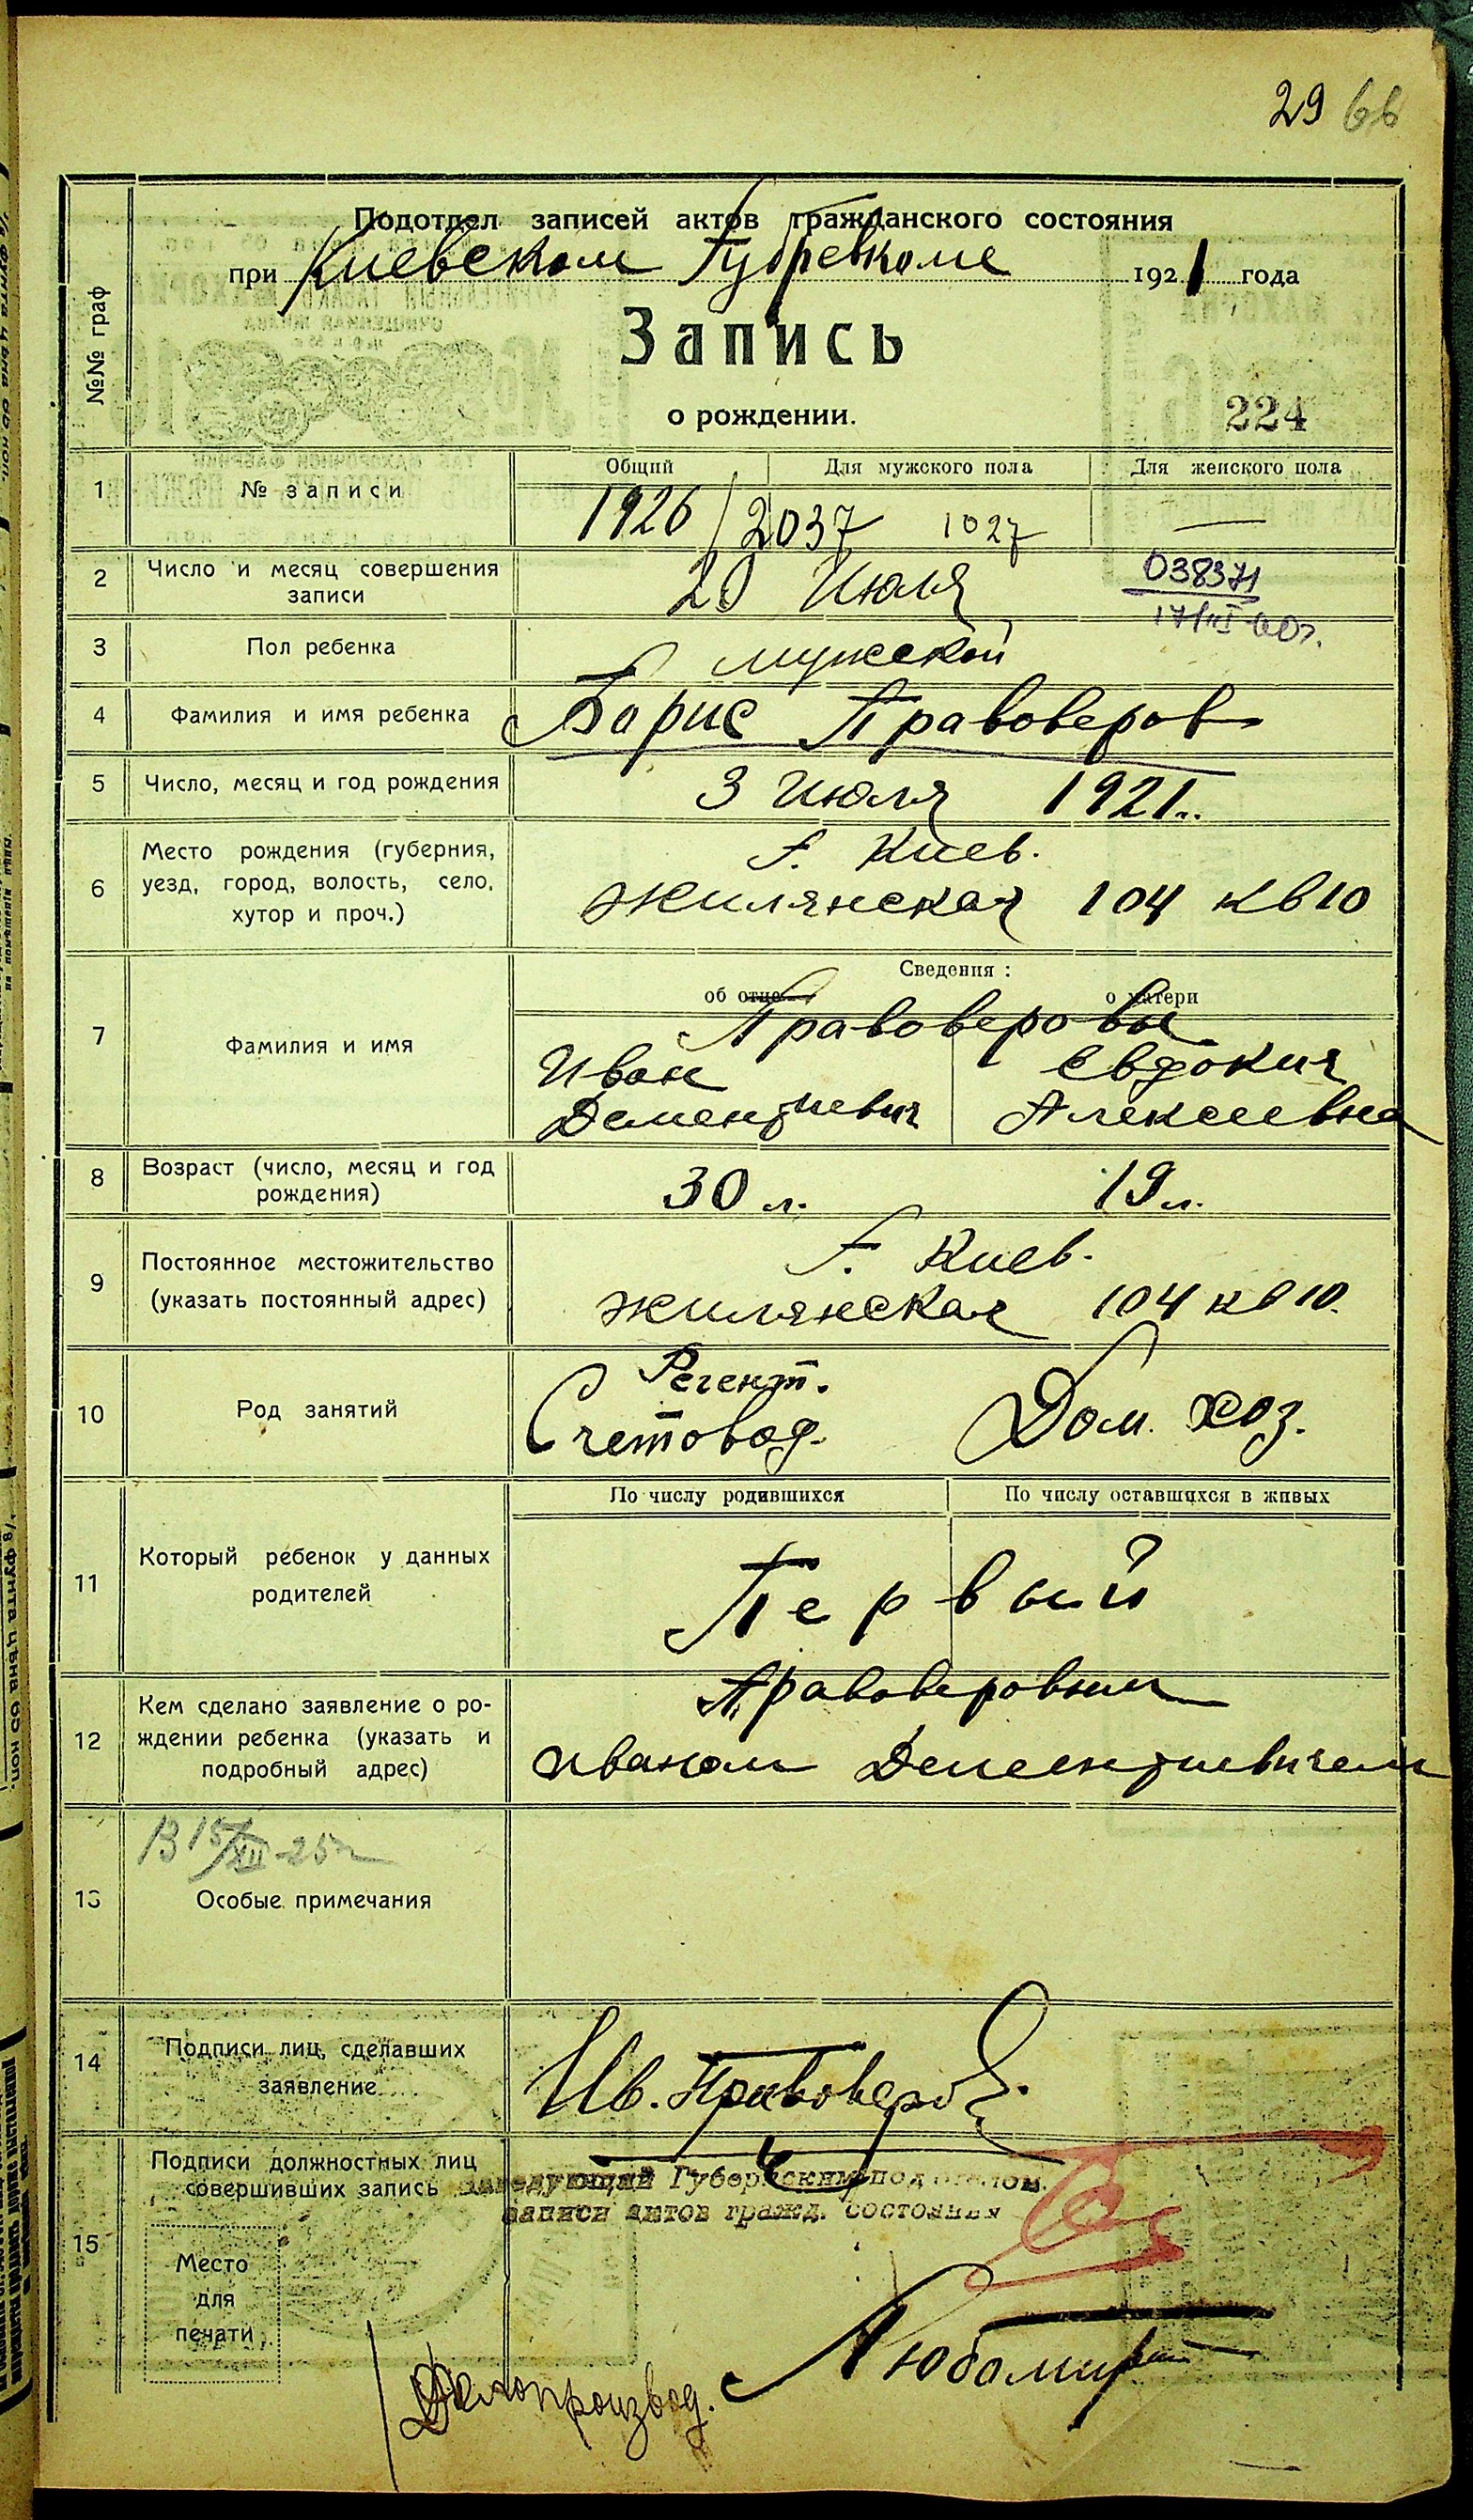 29 66
Подотдел записей актов гражданского состояния
при Киевском Губревкоме 1921 года
№№ граф
Запись
о рождении.
224
Общий Для мужского пола Для женского пола
1 № записи 1926/2037 1027 —
2 Число и месяц совершения записи 20 Июля
038371
17/III 60г.
3 Пол ребенка мужской
4 Фамилия и имя ребенка Борис Правоверов
5 Число, месяц и год рождения 3 Июля 1921..
6 Место рождения (губерния,
уезд, город, волость, село,
хутор и проч.)
г. Киев.
Жилянская 104 кв 10
Сведения:
об отце о матери
7 Фамилия и имя
Правоверовы
Иван Евдокия
Дементиевич Алексеевна
8 Возраст (число, месяц и год
рождения)
30 л. 19 л.
9 Постоянное местожительство
(указать постоянный адрес)
г. Киев.
Жилянская 104 кв 10.
10 Род занятий
Регент.
Счетовод. Дом. хоз.
По числу родившихся По числу оставшихся в живых
11 Который ребенок у данных
родителей
Первый
12 Кем сделано заявление о ро-
ждении ребенка (указать и
подробный адрес)
Правоверовым
Иваном Дементиевичем
В 15/XII-25г
13 Особые примечания
14 Подписи лиц, сделавших
заявление
Ив. Правоверов.
15 Подписи должностных лиц
совершивших запись
Заведующий Губернским подотделом
записи актов гражд. состояния
Место
для
печати
Делопроизвод.